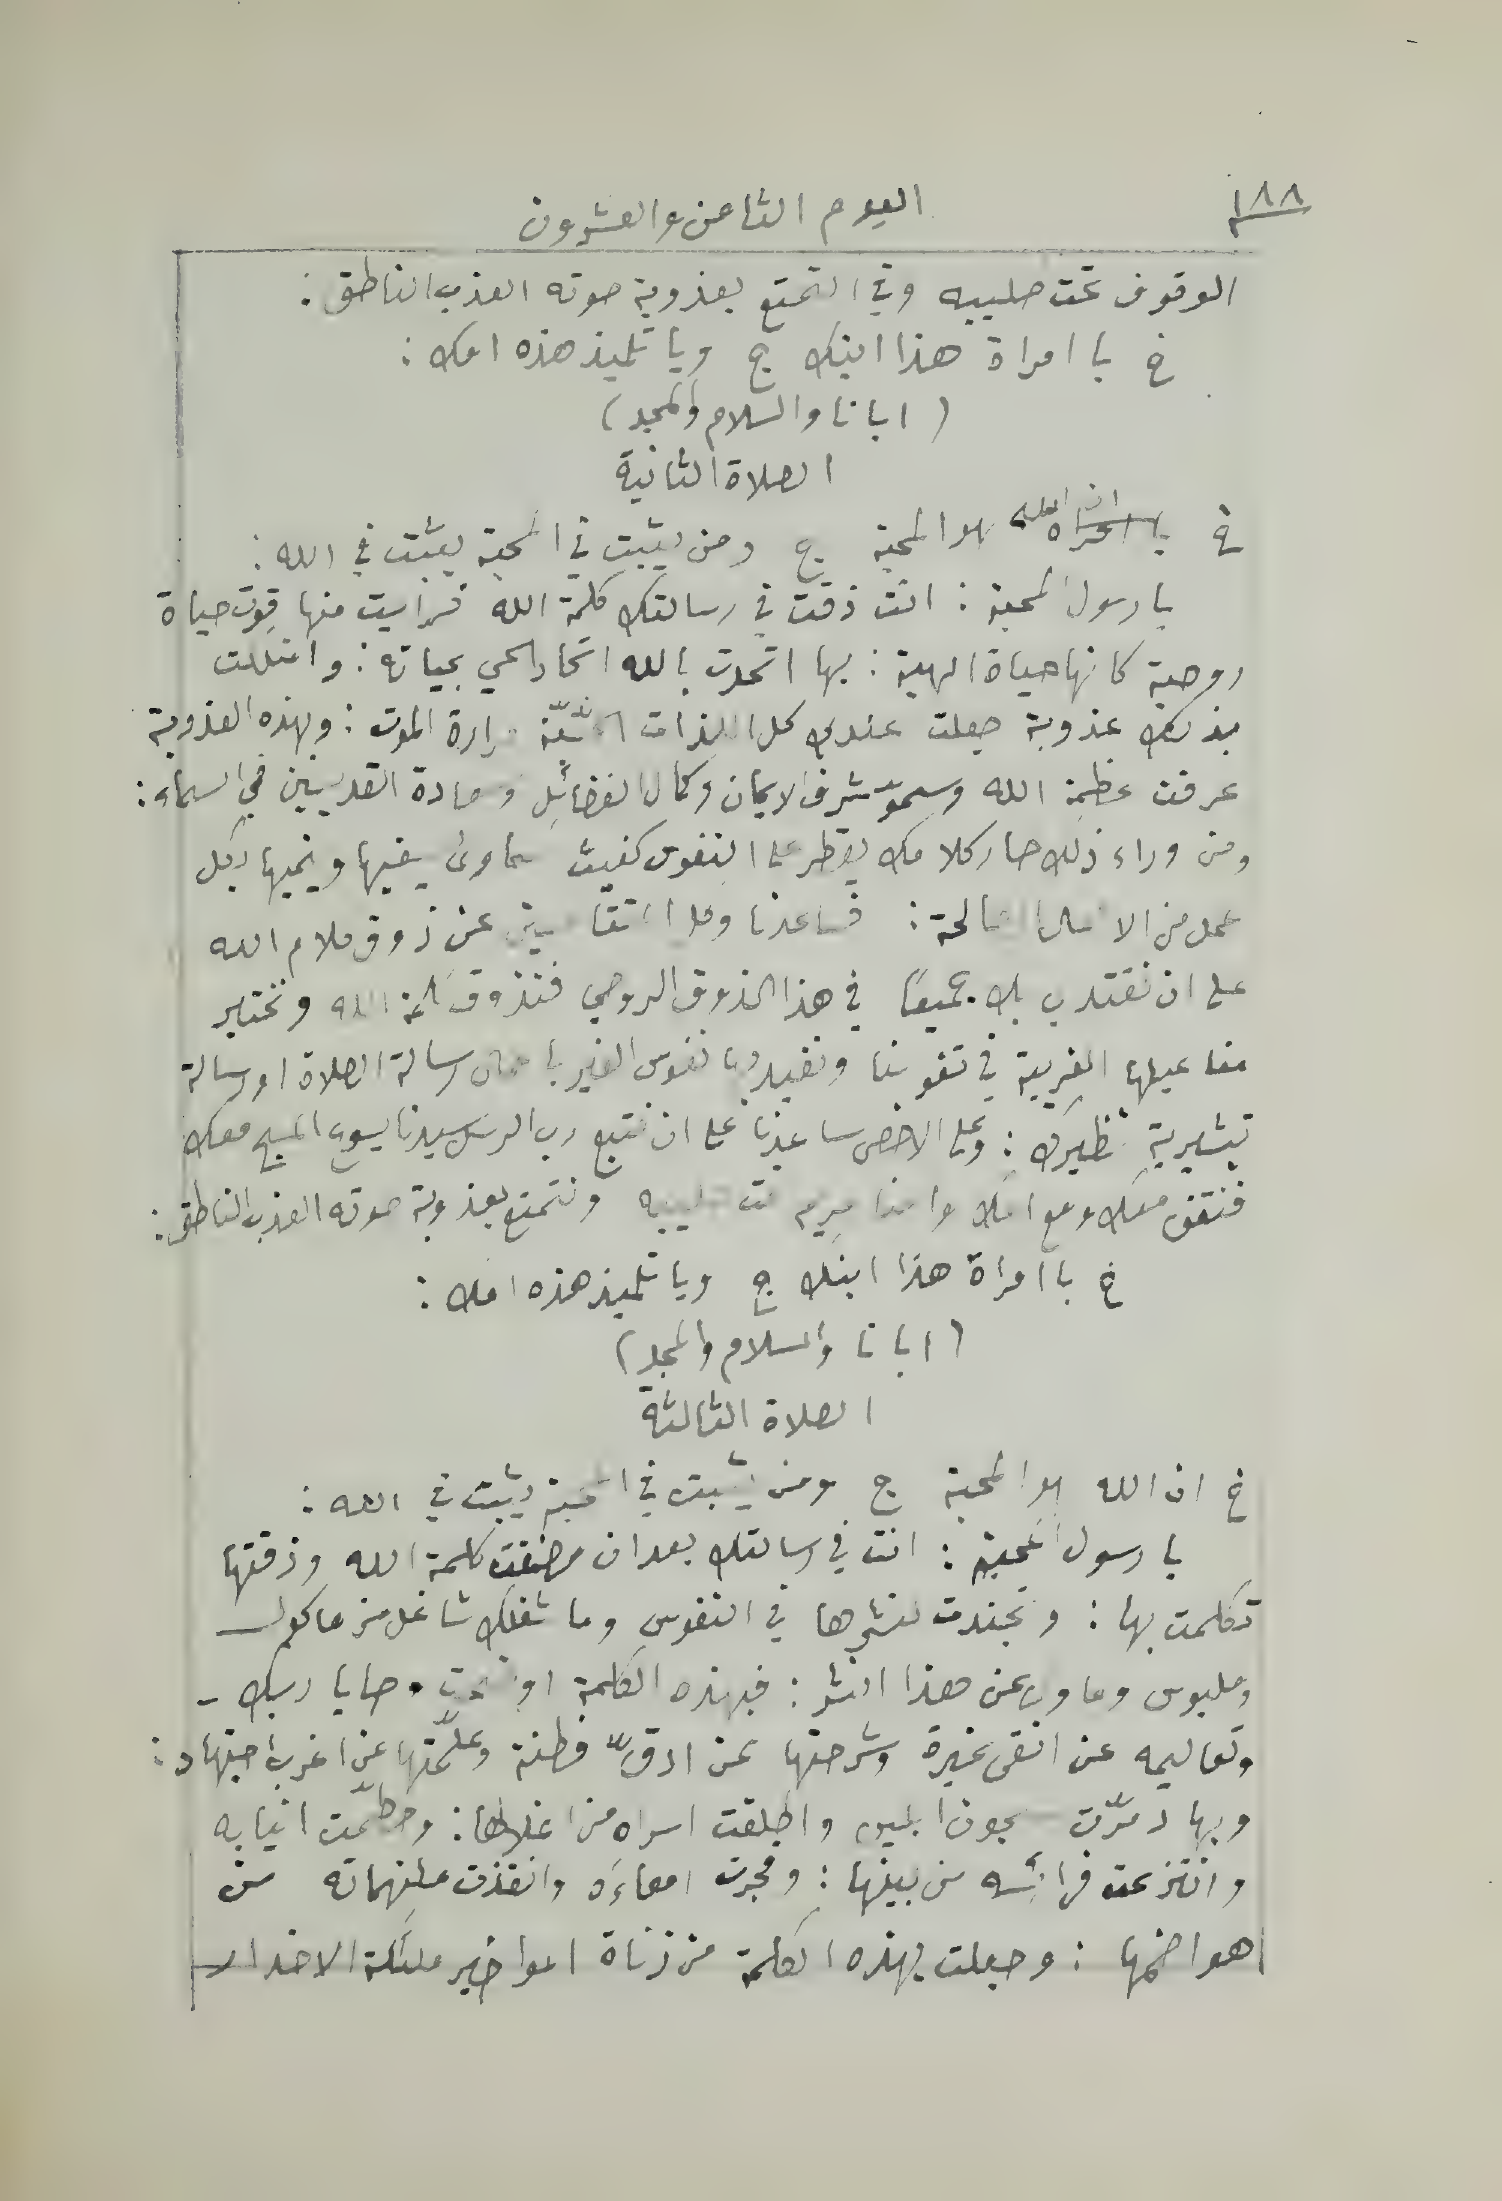 ١٨٨
اليوم الثامن والعشرون
الوقوف تحت صليبه وفي التمتع بعذوبة صوته العذب الناطق :
خ يا امراة هذا ابنك ج ويا تلميذ هذه امك :
( ابانا والسلام والمجد )
الصلاة الثانية
خ يا امراة ان الله هو المحبة ج ومن يثبت في المحبة يثبت في الله :
يا رسول المحبة : انت ذقت في رسالتك كلمة الله فرايت منها قوت حياة
روحية كانها حياة الهية : بها اتحدت بالله اتحاد الحي بحياته : وامتلكت
بذلك عذوبة جعلت عندك كل اللذات مرارة الموت : وبهذه العذوبة
عرفت عظمة الله وسموّ شرف الايمان وكمال الفضائل وسعادة القديسين في السماء :
ومن وراء ذلك صار كلامك يقطر على النفوس كغيث سماوى ويحييها بكل
عمل من الاعمال الصالحة : فساعدنا عن ذوق كلام الله
على ان نقتدي بك جميعًا في هذا الذوق الروحي فنذوق كلمة الله ونختبر
مفاعيلها الغريبة في نفوسنا ونفيد بها نفوس الغير رسالة الصلاة او رسالة
تبشيرية نظيرك : وعلى الاخص ساعدنا على ان نتبع رب الرسل سيدنا يسوع المسيح معك
فنقف معك ومع امك وامنا مريم تحت صليبه ونتمتع بعذوبة صوته العذب الناطق :
خ يا امراة هذا ابنك ج ويا تلميذ هذه امك :
( ابانا والسلام والمجد )
الصلاة الثالثة
خ ان الله هو المحبة ج ومن يثبت في المحبة يثبت في الله :
يا رسول المحبة : انت في رسالتك بعد ان مضغت كلمة الله وذقتها
تكلمت بها : وتجندت لنشرها في النفوس وما شغلك شاغل من ماكول
وملبوس وماوى عن هذا النشر : فبهذه الكلمة وصايا ربك
وتعاليمه عن انقى غيرة وشرحتها عن ادقّ فطنة وعلّمتها عن اغرب اجتهاد :
وبها دمّرت سجون ابليس واطلقت اسراه من اغلالها : وحطّمت انيابه
وانتزعت فرائسه من بينها : وفجرت امعاءَه وانقذت ملتهماته من
اهواضمها : وجعلت بهذه الكلمة من زناة المواخير ملئكة الاخدار